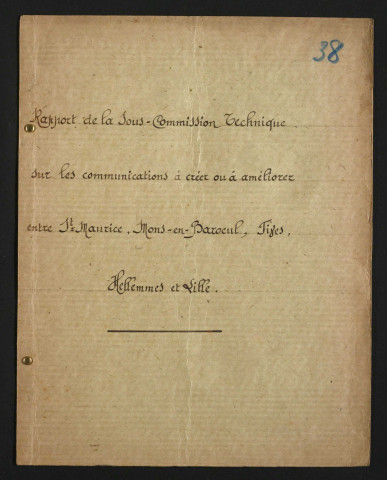 38
Rapport de la Sous-Commission Technique
sur les communications à créer ou à améliorer
entre St-Maurice, Mons-en-Baroeul, Fives,
Hellemmes et Lille.